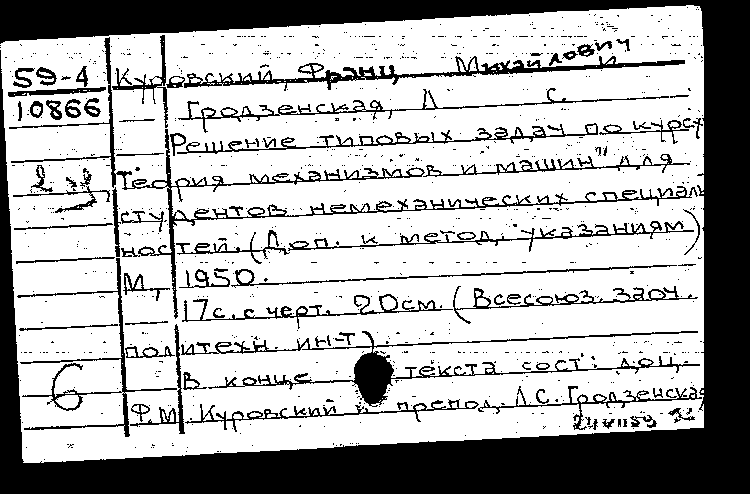 59-4 Куровский, Франц Михайлович и
10866 Гродзенская, Л С.
Решение типовых задач по курсу
"Теория механизмов и машин" для
студентов немеханических специаль
ностей. (Доп. к метод. указаниям)
М., 1950.
17с. с черт. 20см. (Всесоюз. заоч.
политехн. ин-т)
6 В конце текста сост: доц.
Ф.М. Куровский и препод. Л.С. Гродзенская